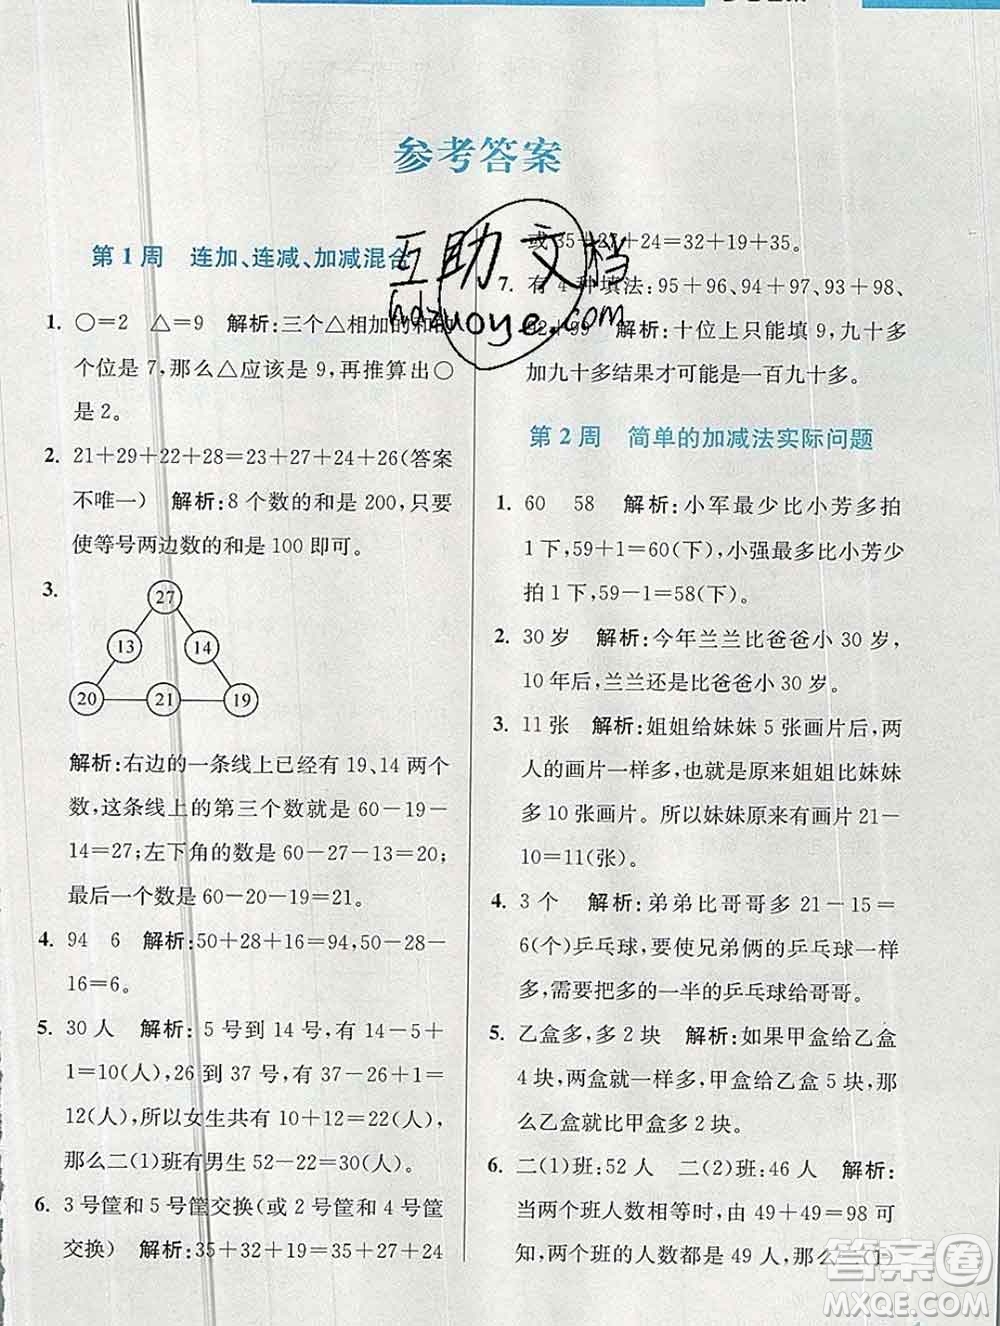 参考答案
第1周 连加、连减、加减混合
1. ○=2 △=9 解析:三个△相加的和的
个位是7,那么△应该是9,再推算出○
是2。
2. 21+29+22+28=23+27+24+26(答案
不唯一) 解析:8个数的和是200,只要
使等号两边数的和是100即可。
3.
27
13 14
20 21 19
解析:右边的一条线上已经有19、14两个
数,这条线上的第三个数就是60-19-
14=27;左下角的数是60-27-13=20;
最后一个数是60-20-19=21。
4. 94 6 解析:50+28+16 50-28-
16=6。
5. 30人 解析:5号到14号,有14-5+
1=10(人),26到37号,有37-26+1=
12(人),所以女生共有10+12=22(人),
那么二(1)班有男生52-22=30(人)。
6. 3号筐和5号筐交换(或2号筐和4号筐
交换) 解析:35+32+19=35+27+24
或35+27+24=32+19+35。
7. 有4种填法:95+96、94+97、93+98、
92+99 解析:十位上只能填9,九十多
加九十多结果才可能是一百九十多。
第2周 简单的加减法实际问题
1. 60 58 解析:小军最少比小芳多拍
1下,59+1=60(下),小强最多比小芳少
拍1下,59-1=58(下)。
2. 30岁 解析:今年兰兰比爸爸小30岁,
10年后,兰兰还是比爸爸小30岁。
3. 11张 解析:姐姐给妹妹5张画片后,两
人的画片一样多,也就是原来姐姐比妹妹
多10张画片。所以妹妹有画片21-
10=11(张)。
4. 3个 解析:弟弟比哥哥多21-15=
6(个)乒乓球,要使兄弟俩的乒乓球一样
多,需要把多的一半的乒乓球给哥哥。
5. 乙盒多,多2块 解析:如果甲盒给乙盒
4块,两盒就一样多,甲盒给乙盒5块,那
么乙盒就比甲盒多2块。
6. 二(1)班:52人 二(2)班:46人 解析:
当两个班人数相等时,由49+49=98可
知,两个班的人数都是49人,那么二(1)
互助文档
hdzuoye.com
答案圈
MXQE.COM